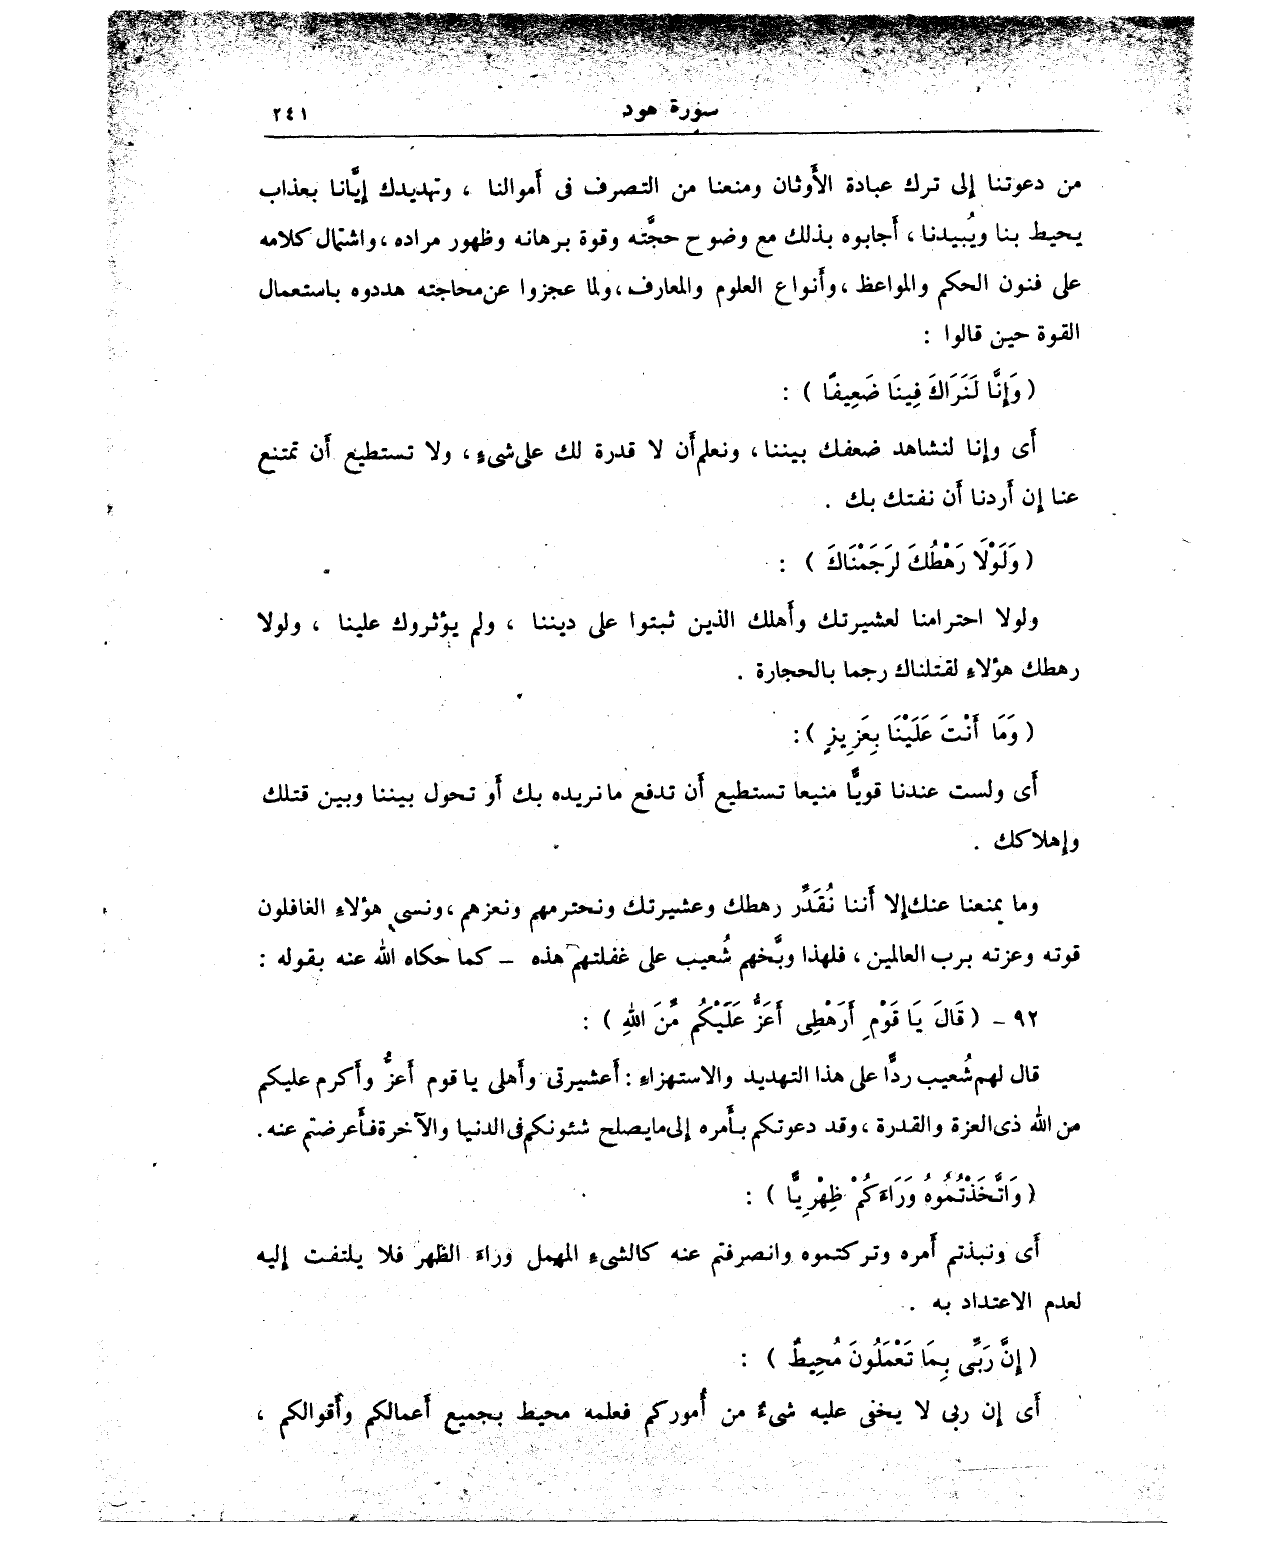 سورة هود ٢٤١
من دعوتنا إلى ترك عبادة الأَوثان ومنعنا من التصرف فى أَموالنا ، وتهديدك إيَّانا بعذاب
يحيط بنا ويُبيدنا ، أَجابوه بذلك مع وضوح حجَّته وقوة برهانه وظهور مراده ، واشتمال كلامه
على فنون الحكم والمواعظ ، وأَنواع العلوم والمعارف ، ولما عجزوا عن محاجته هددوه باستعمال
القوة حين قالوا :
( وَإِنَّا لَنَرَاكَ فِينَا ضَعِيفًا ) :
أَى وإنا لنشاهد ضعفك بيننا ، ونعلم أَن لا قدرة لك على شىءٍ ، ولا تستطيع أَن تمتنع
عنا إن أَردنا أَن نفتك بك .
( وَلَوْلَا رَهْطُكَ لَرَجَمْنَاكَ ) :
ولولا احترامنا لعشيرتك وأَهلك الذين ثبتوا على ديننا ، ولم يؤثروك علينا ، ولولا
رهطك هؤلاءِ لقتلناك رجما بالحجارة .
( وَمَا أَنْتَ عَلَيْنَا بِعَزِيزٍ ) :
أَى ولست عندنا قويًّا منيعا تستطيع أَن تدفع ما نريده بك أَو تحول بيننا وبين قتلك
وإهلاكك .
وما يمنعنا عنك إلا أَننا نُقَدِّر رهطك وعشيرتك ونحترمهم ونعزهم ، ونسى هؤلاءِ الغافلون
قوته وعزته برب العالمين ، فلهذا وبَّخهم شُعيب على غفلتهم هذه – كما حكاه الله عنه بقوله :
٩٢ – ( قَالَ يَا قَوْمِ أَرَهْطِى أَعَزُّ عَلَيْكُم مِّنَ اللهِ ) :
قال لهم شُعيب ردًّا على هذا التهديد والاستهزاءِ : أَعشيرتى وأَهلى يا قوم أَعزُّ وأَكرم عليكم
من الله ذى العزة والقدرة ، وقد دعوتكم بأَمره إلى ما يصلح شئونكم فى الدنيا والآخرة فأَعرضتم عنه .
( وَاتَّخَذْتُمُوهُ وَرَاءَكُمْ ظِهْرِيًّا ) :
أَى ونبذتم أَمره وتركتموه وانصرفتم عنه كالشىءِ المهمل وراءَ الظهر فلا يلتفت إليه
لعدم الاعتداد به .
( إِنَّ رَبِّى بِمَا تَعْمَلُونَ مُحِيطٌ ) :
أَى إن ربى لا يخفى عليه شىءٌ من أُموركم فعلمه محيط بجميع أَعمالكم وأَقوالكم ،